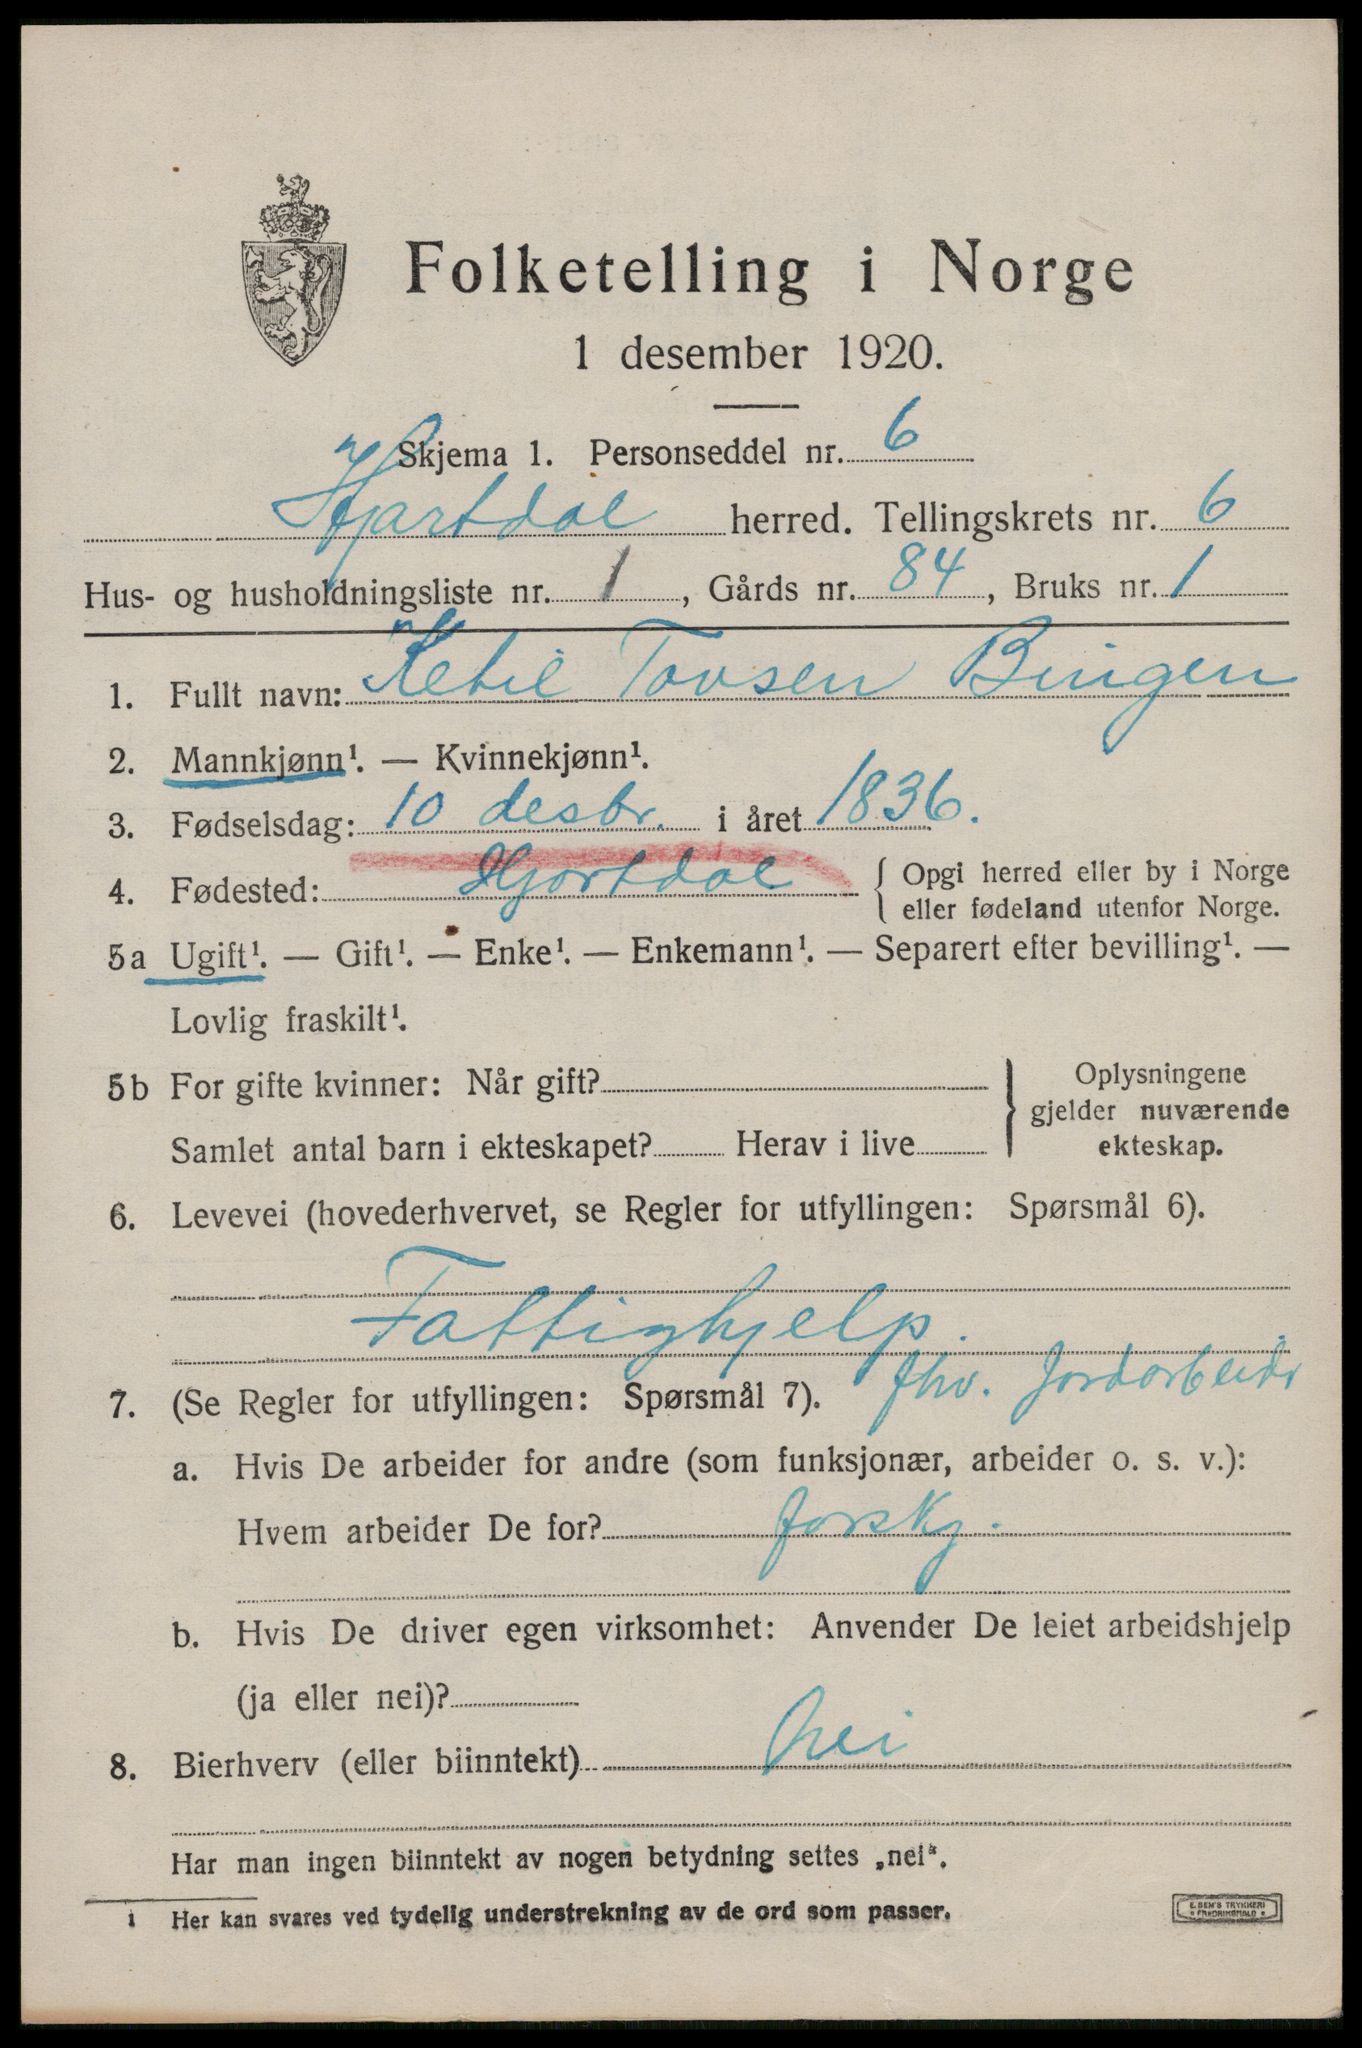 Folketelling i Norge
1 desember 1920.
Skjema 1. Personseddel nr. 6
Hjartdal herred. Tellingskrets nr. 6
Hus- og husholdningsliste nr. 1, Gårds nr. 84, Bruks nr. 1
1. Fullt navn: Ketil Tovsen Bingen
2. Mannkjønn¹. — Kvinnekjønn¹.
3. Fødselsdag: 10 desbr. i året 1836.
4. Fødested: Hjartdal { Opgi herred eller by i Norge
eller fødeland utenfor Norge.
5a Ugift¹. — Gift¹. — Enke¹. — Enkemann¹. — Separert efter bevilling¹. —
Lovlig fraskilt¹.
5b For gifte kvinner: Når gift? } Oplysningene
gjelder nuværende
Samlet antal barn i ekteskapet? Herav i live ekteskap.
6. Levevei (hovederhvervet, se Regler for utfyllingen: Spørsmål 6).
Fattighjelp.
7. (Se Regler for utfyllingen: Spørsmål 7). fhv. Jordarbeidr
a. Hvis De arbeider for andre (som funksjonær, arbeider o. s. v.):
Hvem arbeider De for? forskj.
b. Hvis De driver egen virksomhet: Anvender De leiet arbeidshjelp
(ja eller nei)?
8. Bierhverv (eller biinntekt) nei
Har man ingen biinntekt av nogen betydning settes „nei“.
1 Her kan svares ved tydelig understrekning av de ord som passer.
E. SEM'S TRYKKERI
FREDRIKSHALD